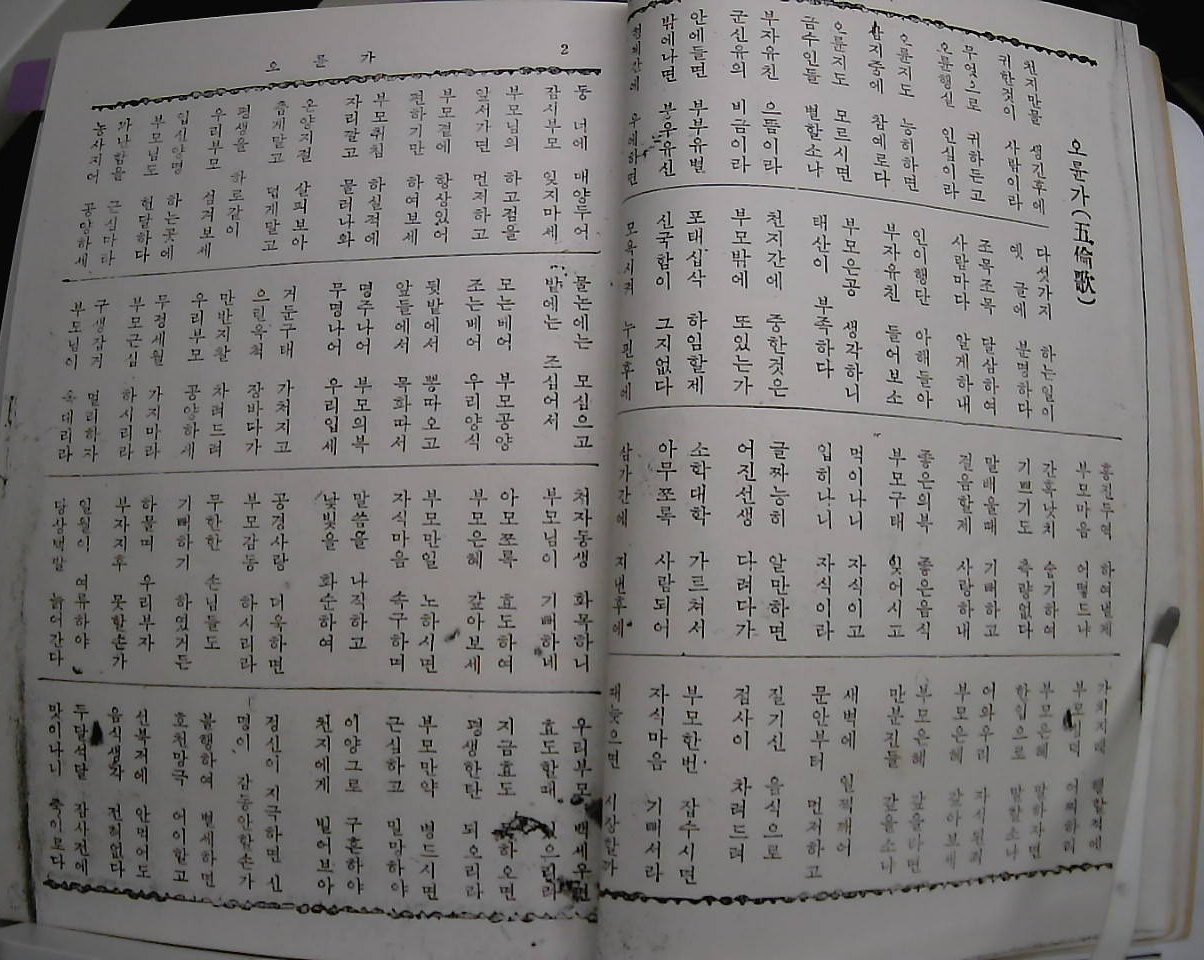 오륜가(五倫歌)
천지만물 생긴후에
귀한것이 사람이라
무엇으로 귀하든고
오륜행실 인십이라
오륜지도 능히하면
삼지중에 참예로다
오륜지도 모르시면
금수인들 별할소냐
부자유친 으뜸이라
군신유의 비금이라
안에들면 부부유별
밖에나면 붕우유신
형제간에 우애하면
다섯가지 하는일이
옛 글에 분명하다
조목조목 달삼하여
사람마다 알게하내
인이행단 아해들아
부자유친 들어보소
부모은공 생각하니
태산이 부족하다
천지간에 중한것은
부모밖에 또있는가
포대십삭 하임할제
신국함이 그지없다
모욕시켜 누핀후에
홍진두역 하여낼제
부모마음 어떻드냐
간혹낫치 슬기하여
기쁘기도 측량없다
말배울때 기뻐하고
걸음할제 사랑하내
좋은의복 좋은음식
부모구태 잊어시고
먹이나니 자식이고
입히나니 자식이라
글짜능히 알만하면
어진선생 다려다가
소학대학 가르쳐서
아무쪼록 사람되어
삼가간에 지낸후에
부모은혜 말하자면
한입으로 말할소냐
어와우리 자식된의
부모은혜 갚아보세
부모은혜 갚을다면
만분진들 갚을소냐
새벽에 일찍깨어
문안부터 먼저하고
질기신 음식으로
검사이 차려드려
부모한번 잡수시면
자식마음 기뻐서라
때늦으면 시장한가
2
오륜가
동 녀에 매양두어
잠시부모 잊지마세
부모님의 하고접을
앞서가면 먼저하고
부모곁에 항상있어
편하기만 하여보세
부모취침 하실적에
자리깔고 물러나와
온양지절 살펴보아
춥게말고 덥게말고
평생을 하로같이
우리부모 섬겨보세
입신양명 하는곳에
부모님도 현달하다
가난함을 근심마라
농사지어 공양하세
물논에는 모십으고
밭에는 조십어서
모는베어 부모공양
조는베어 우리양식
뒷밭에서 뽕따오고
앞들에서 목화따서
명주나어 부모의복
무명나어 우리입세
거둔구태 가처지고
으린옥척 장바다가
만반지찬 차려드려
우리부모 공양하세
무정세월 가지마라
부모근심 하시리라
구생잡거 멀리하자
부모님이 욕데리라
처자동생 화목하니
부모님이 기뻐하네
아모쪼록 효도하여
부모은혜 갚아보세
부모만일 노하시면
자식마음 속구하며
말씀을 나직하고
낯빛을 화순하여
공경사랑 더욱하면
부모감동 하시리라
무한한 손님들도
기뻐하기 하였거든
하물며 우리부자
부자지후 못할손가
일월이 여류하야
당상백발 늙어간다
우리부모 백세우런
효도할때
지금효도 못하오면
평생한탄 되오리라
부모만약 병드시면
근심하고 밀망하야
이양그로 구혼하야
천지에게 빌어보아
정신이 지극하면 신
명이 감동안할손가
불행하여 별세하면
호천망극 어이할고
선북저에 안먹어도
음식생각 전혀없다
두달석달 잠사전에
맛이나니 죽이로다